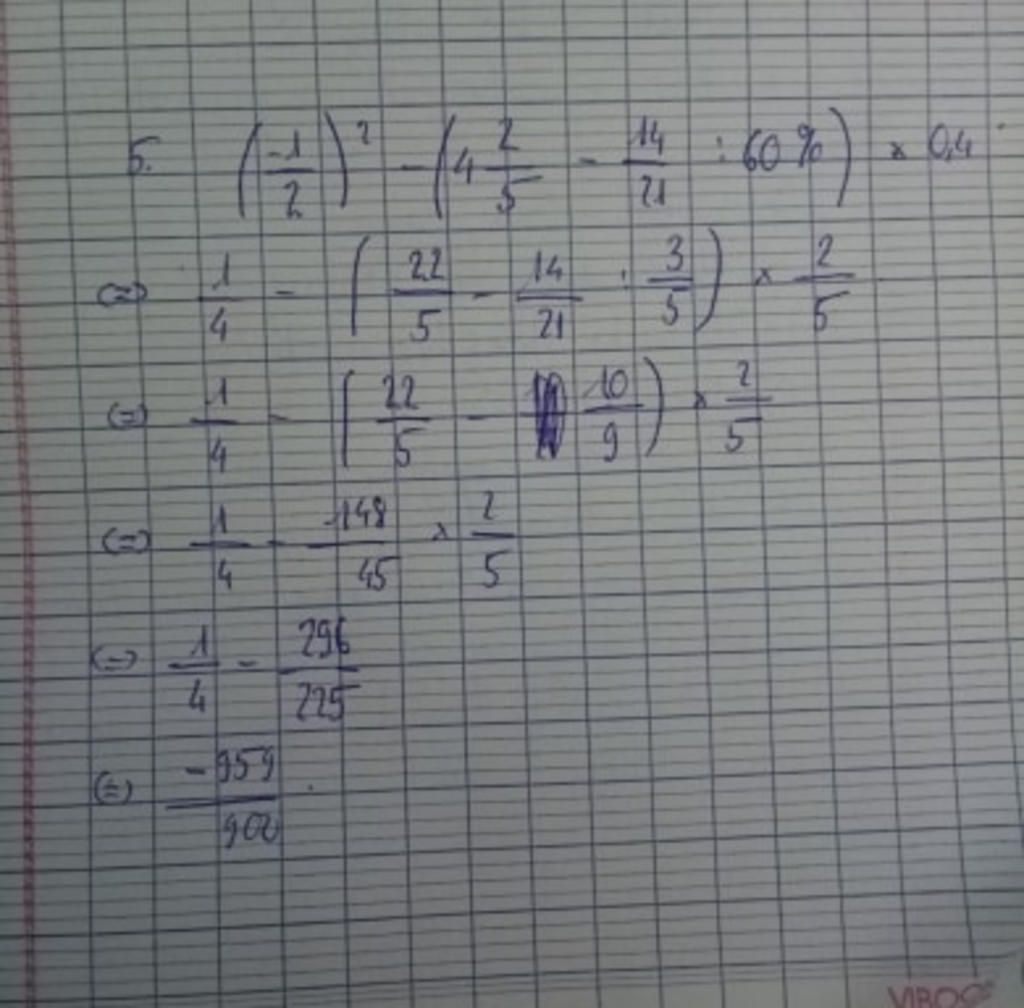 5. (-1/2)² - (4 2/5 - 14/21 : 60%) × 0,4
(=) 1/4 - (22/5 - 14/21 : 3/5) × 2/5
(=) 1/4 - (22/5 - 10/9) × 2/5
(=) 1/4 - 148/45 × 2/5
(=) 1/4 - 296/225
(=) -959/900